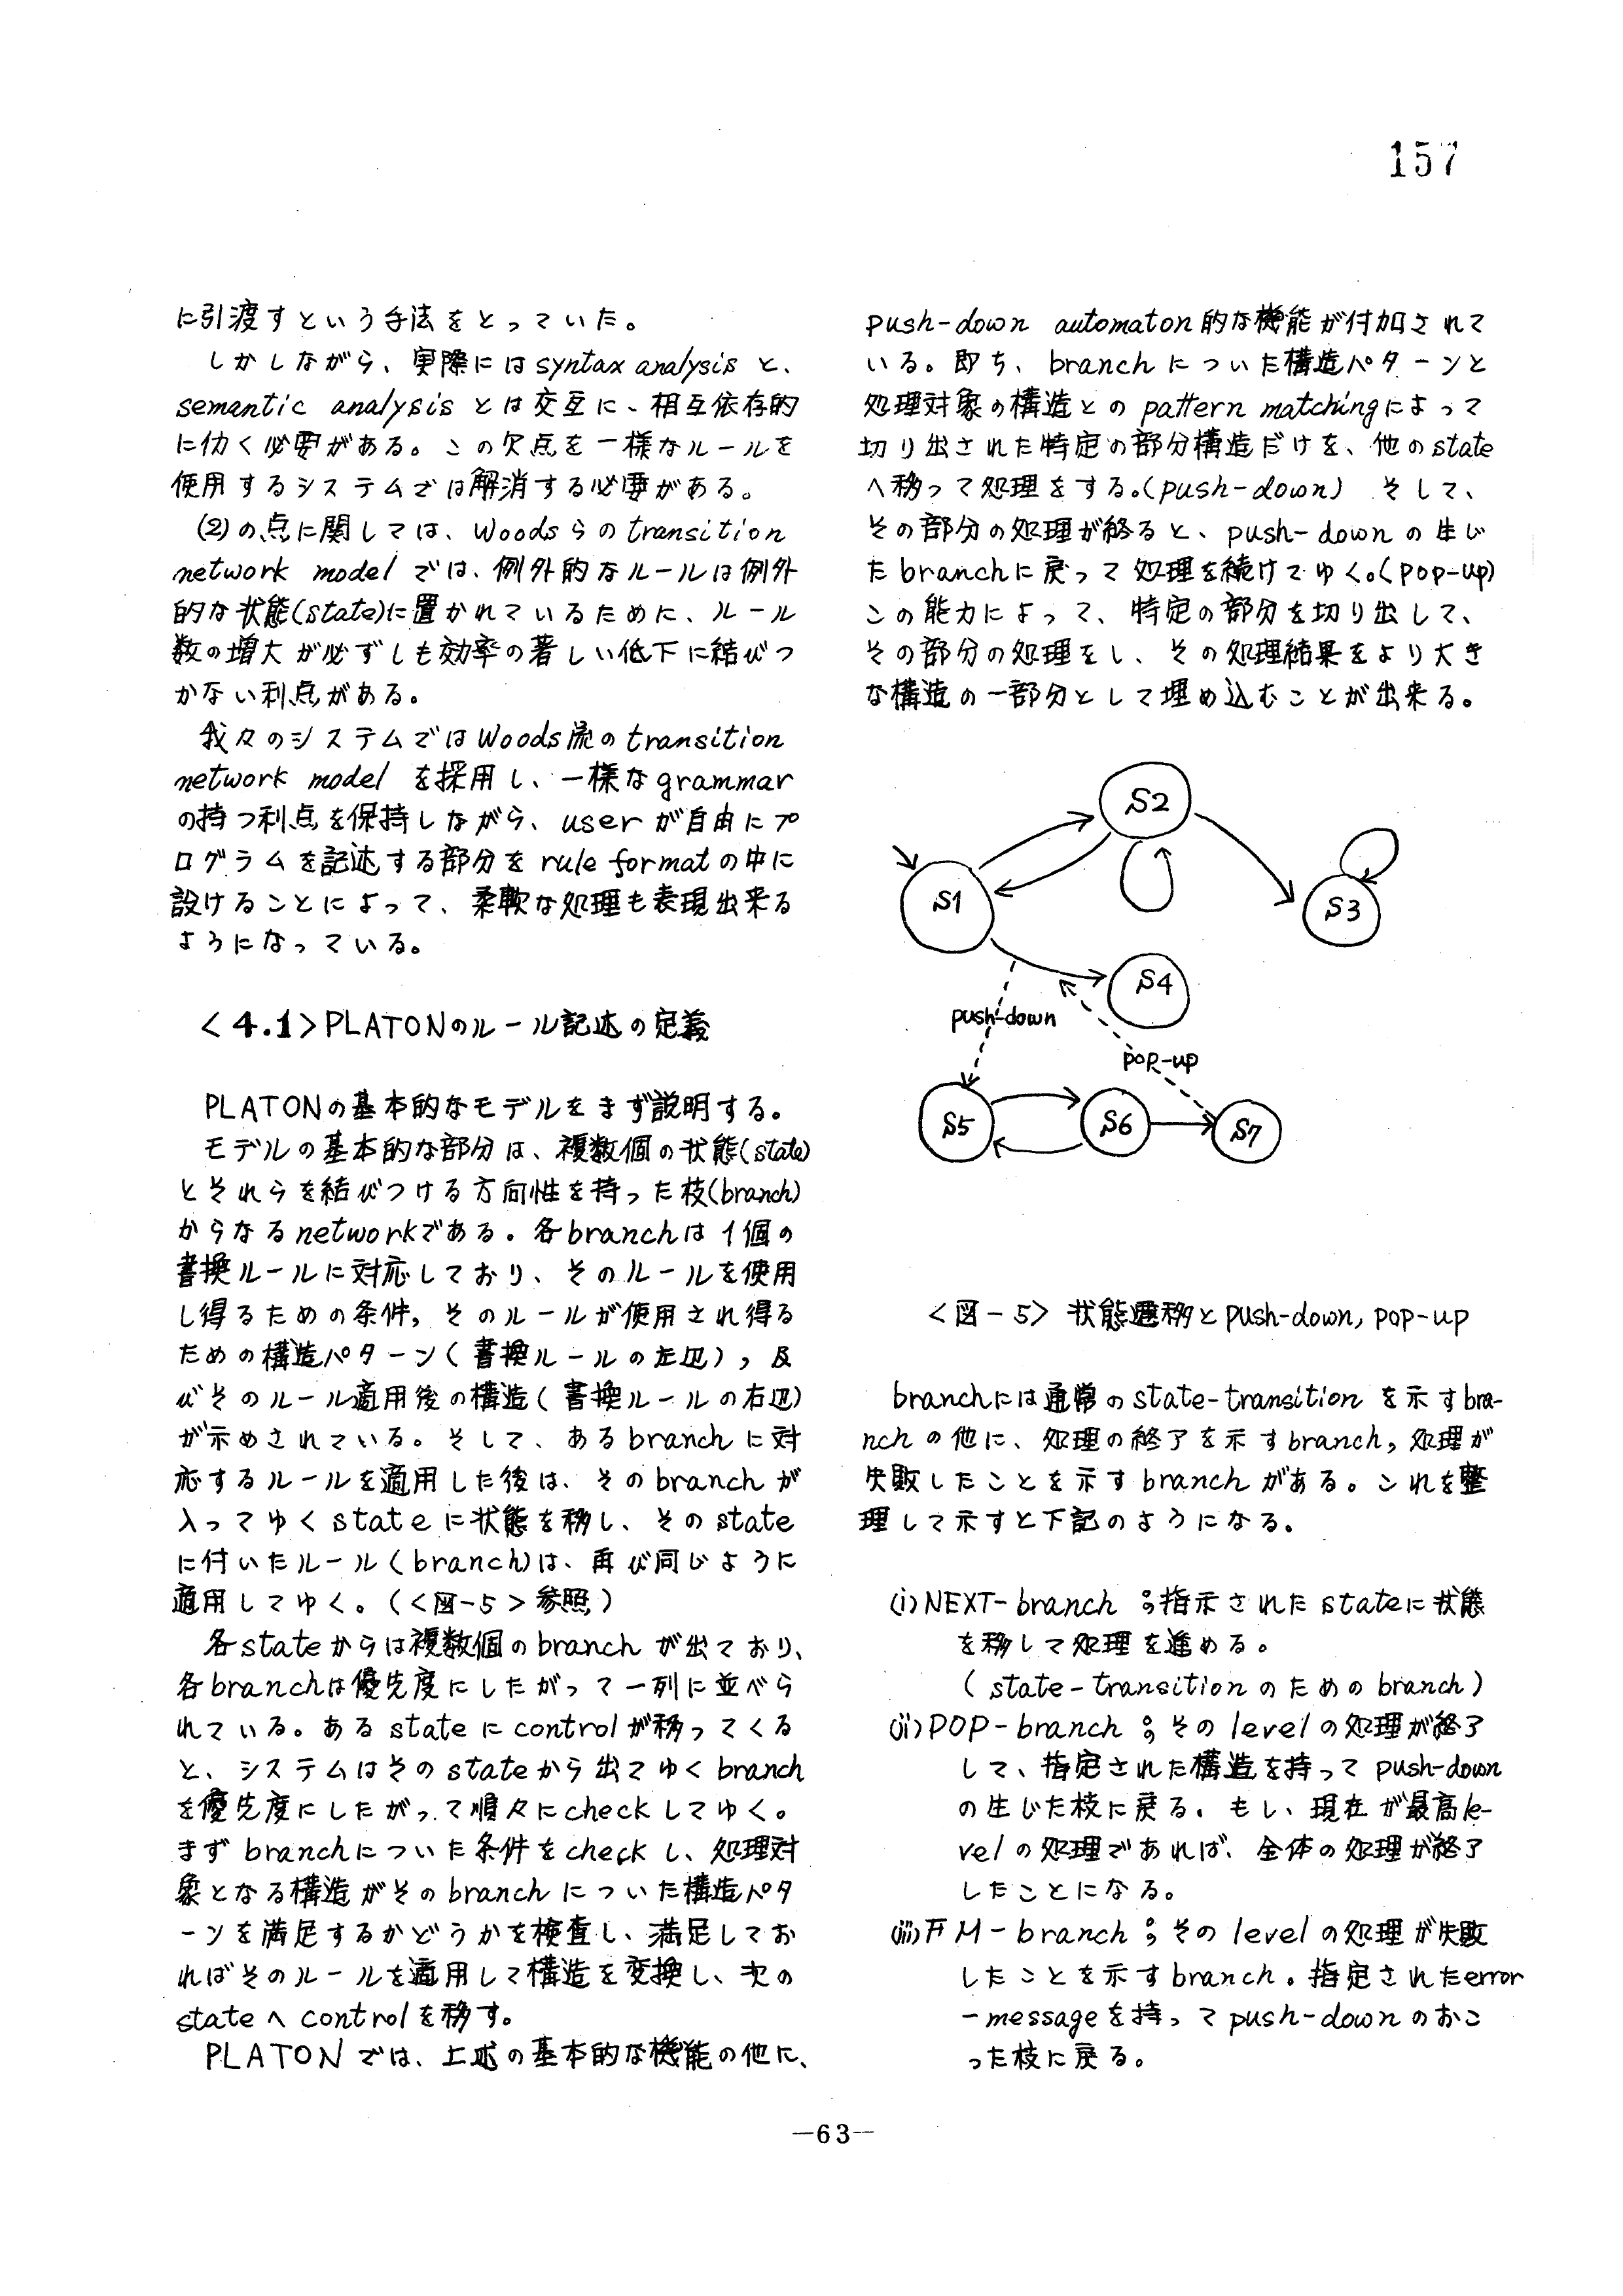 157
に引渡すという手法をとっていた。
しかしながら、実際にはsyntax analysis と、
semantic analysis とは交互に、相互依存的
に仂く必要がある。この欠点を一様なルールを
使用するシステムでは解消する必要がある。
(2)の点に関しては、Woodsらのtransition
network model では、例外的なルールは例外
的な状態(state)に置かれているために、ルール
数の増大が必ずしも効率の著しい低下に結びつ
かない利点がある。
我々のシステムではWoods流のtransition
network model を採用し、一様なgrammar
の持つ利点を保持しながら、userが自由にプ
ログラムを記述する部分をrule formatの中に
設けることによって、柔軟な処理も表現出来る
ようになっている。
<4.1>PLATONのルール記述の定義
PLATONの基本的なモデルをまず説明する。
モデルの基本的な部分は、複数個の状態(state)
とそれらを結びつける方向性を持った枝(branch)
からなるnetworkである。各branchは1個の
書換ルールに対応しており、そのルールを使用
し得るための条件, そのルールが使用され得る
ための構造パターン(書換ルールの左辺), 及
びそのルール適用後の構造(書換ルールの右辺)
が示めされている。そして、あるbranchに対
応するルールを適用した後は、そのbranchが
入ってゆくstateに状態を移し、そのstate
に付いたルール(branch)は、再び同じように
適用してゆく。(<図-5>参照)
各stateからは複数個のbranchが出ており、
各branchは優先度にしたがって一列に並べら
れている。あるstateにcontrolが移ってくる
と、システムはそのstateから出てゆくbranch
を優先度にしたがって順々にcheckしてゆく。
まずbranchについた条件をcheckし、処理対
象となる構造がそのbranchについた構造パタ
ーンを満足するかどうかを検査し、満足してお
ればそのルールを適用して構造を変換し、次の
stateへcontrolを移す。
PLATONでは、上述の基本的な機能の他に、
push-down automaton的な機能が付加されて
いる。即ち、branchについた構造パターンと
処理対象の構造とのpattern matchingによって
切り出された特定の部分構造だけを、他のstate
へ移って処理をする。(push-down) そして、
その部分の処理が終ると、push-downの生じ
たbranchに戻って処理を続けてゆく。(pop-up)
この能力によって、特定の部分を切り出して、
その部分の処理をし、その処理結果をより大き
な構造の一部分として埋め込むことが出来る。
S2
S1
S3
S4
push-down
pop-up
S5
S6
S7
<図-5> 状態遷移とpush-down, pop-up
branchには通常のstate-transitionを示すbra-
nchの他に、処理の終了を示すbranch, 処理が
失敗したことを示すbranchがある。これを整
理して示すと下記のようになる。
(i)NEXT-branch ; 指示されたstateに状態
を移して処理を進める。
(state-transitionのためのbranch)
(ii)POP-branch ; そのlevelの処理が終了
して、指定された構造を持ってpush-down
の生じた枝に戻る。もし、現在が最高le-
velの処理であれば、全体の処理が終了
したことになる。
(iii)FM-branch ; そのlevelの処理が失敗
したことを示すbranch。指定されたerror
-messageを持ってpush-downのおこ
った枝に戻る。
-63-